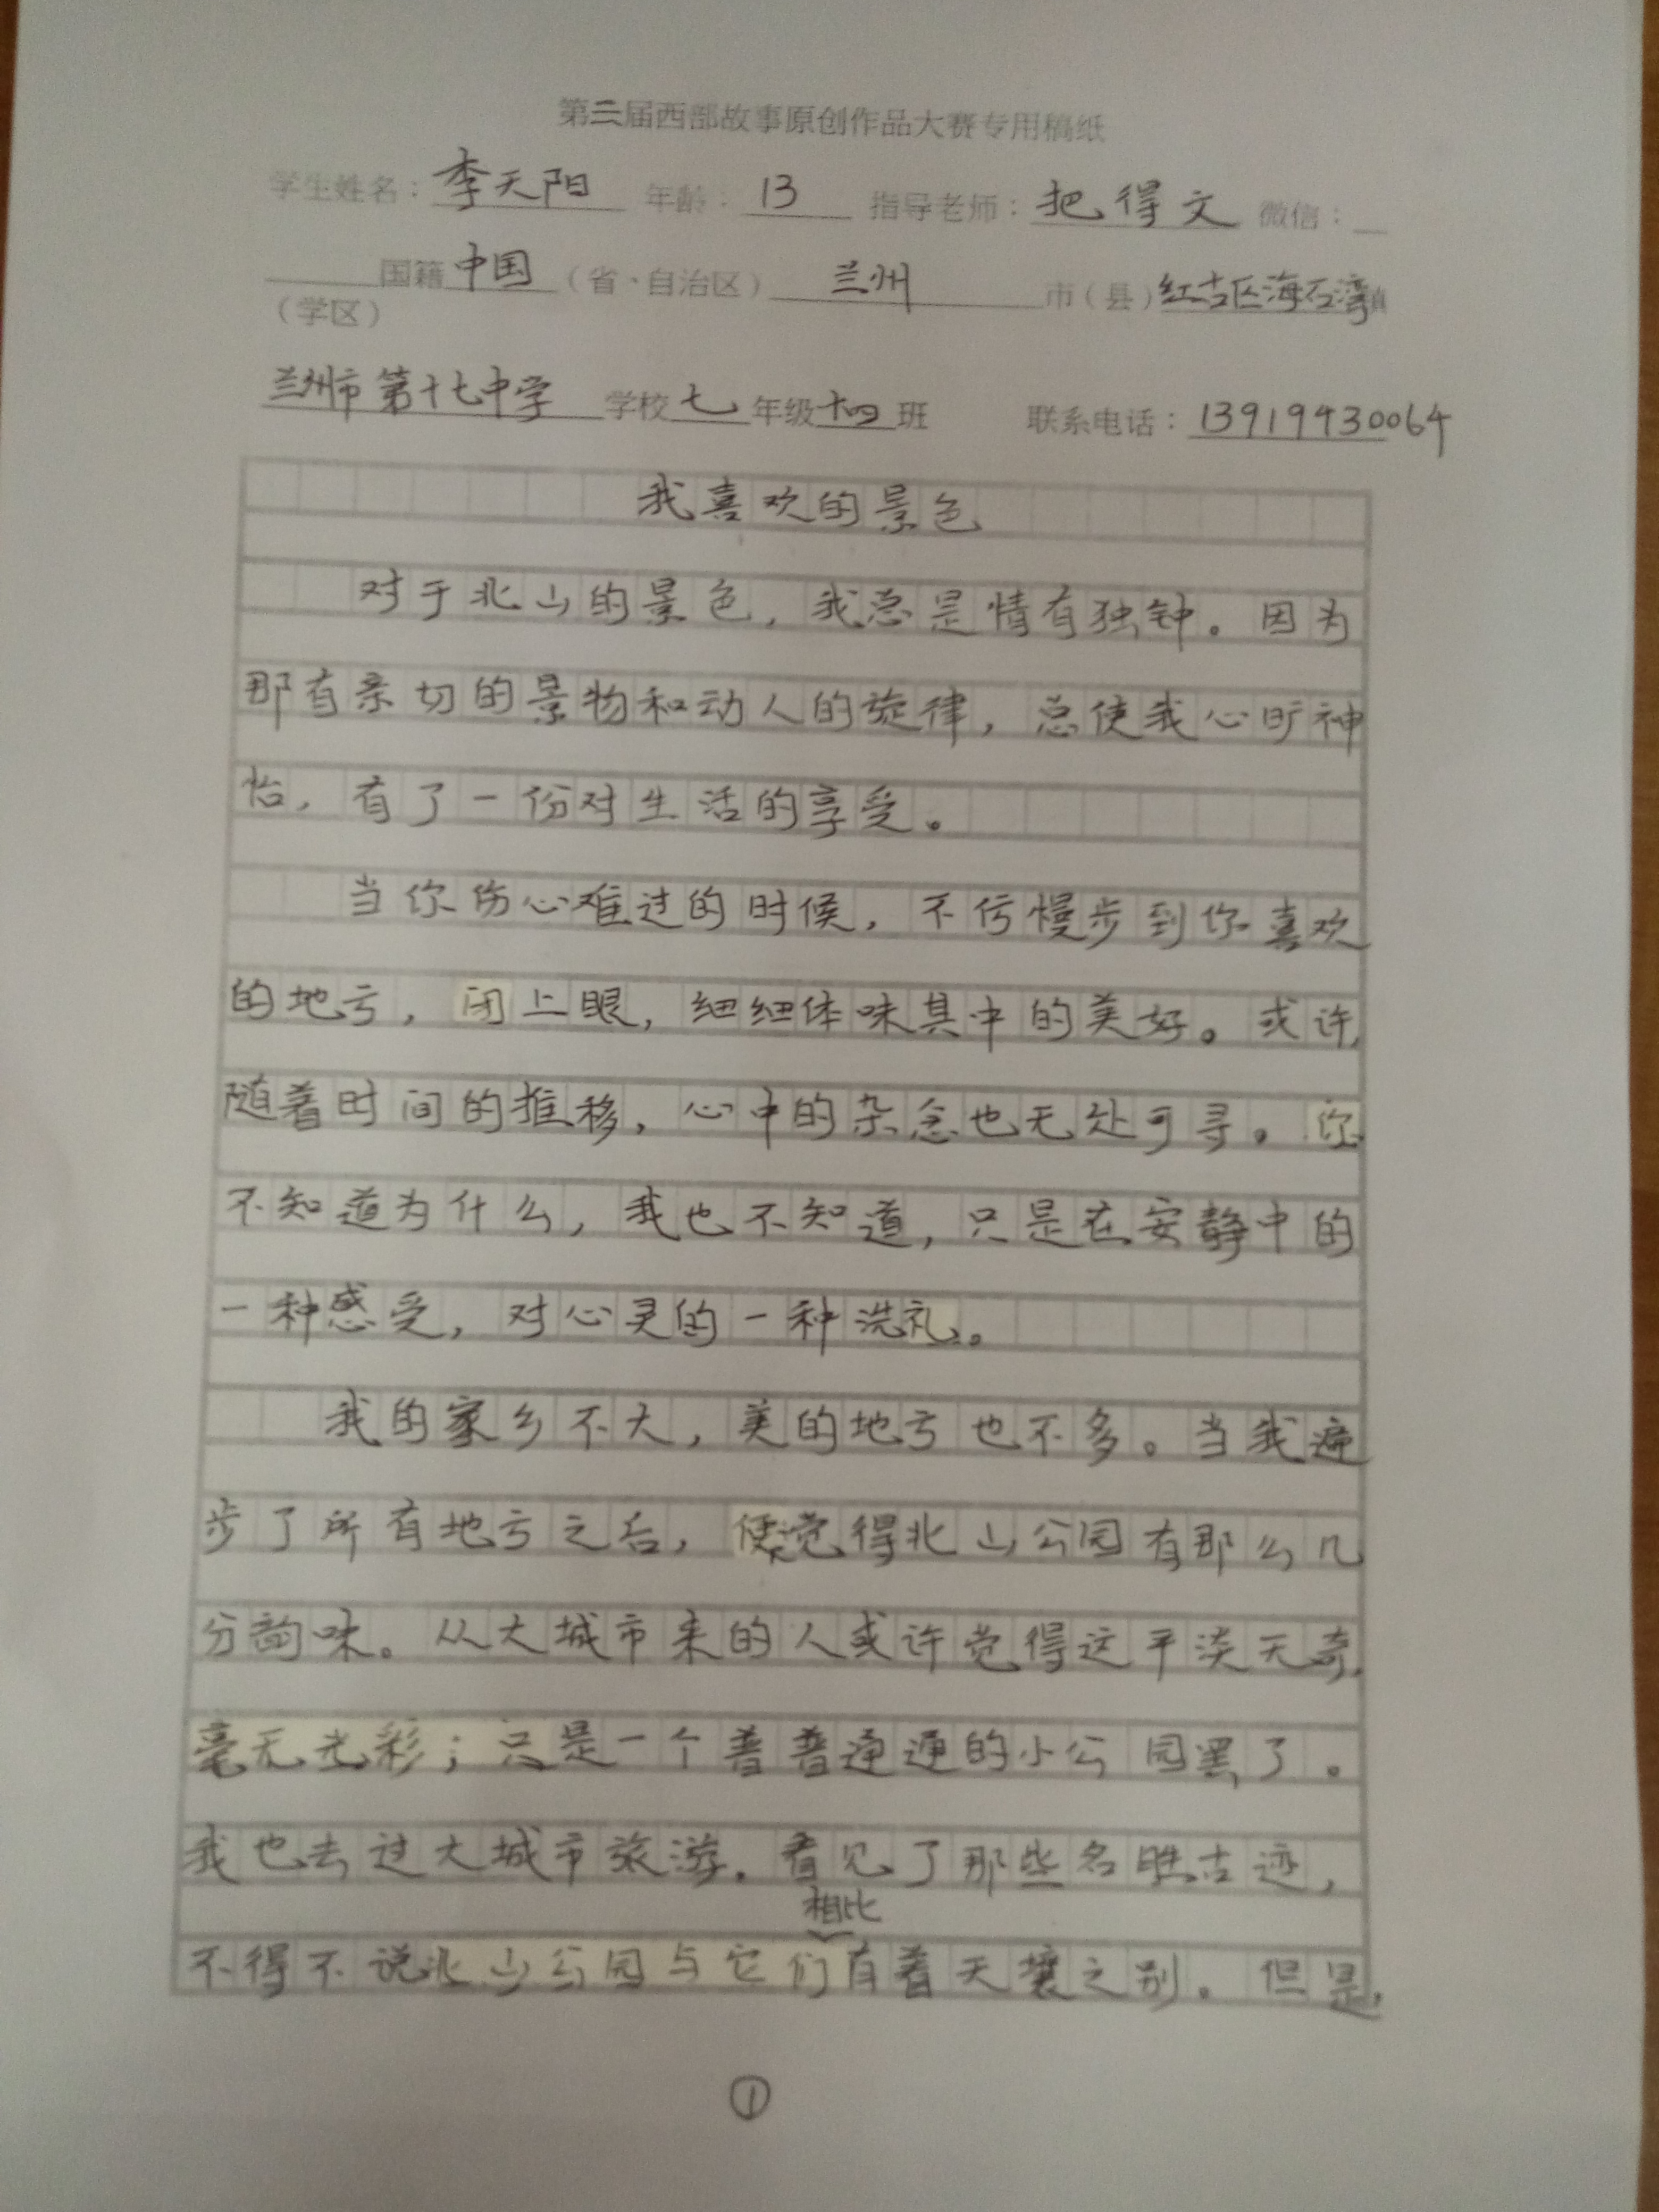 第二届西部故事原创作品大赛专用稿纸
学生姓名：李天阳 年龄：13 指导老师：把得文 微信：
国籍 中国 （省·自治区） 兰州 市（县）红古区海石湾镇
（学区）
兰州市第十七中学 学校 七 年级 十四 班 联系电话：13919430064
我喜欢的景色
对于北山的景色，我总是情有独钟。因为
那有亲切的景物和动人的旋律，总使我心旷神
怡，有了一份对生活的享受。
当你伤心难过的时候，不仿慢步到你喜欢
的地方，闭上眼，细细体味其中的美好。或许，
随着时间的推移，心中的杂念也无处可寻。你
不知道为什么，我也不知道，只是在安静中的
一种感受，对心灵的一种洗礼。
我的家乡不大，美的地方也不多。当我遍
步了所有地方之后，便觉得北山公园有那么几
分韵味。从大城市来的人或许觉得这平淡无奇，
毫无光彩；只是一个普普通通的小公园罢了。
我也去过大城市旅游，看见了那些名胜古迹，
相比
不得不说北山公园与它们有着天壤之别。但是，
①